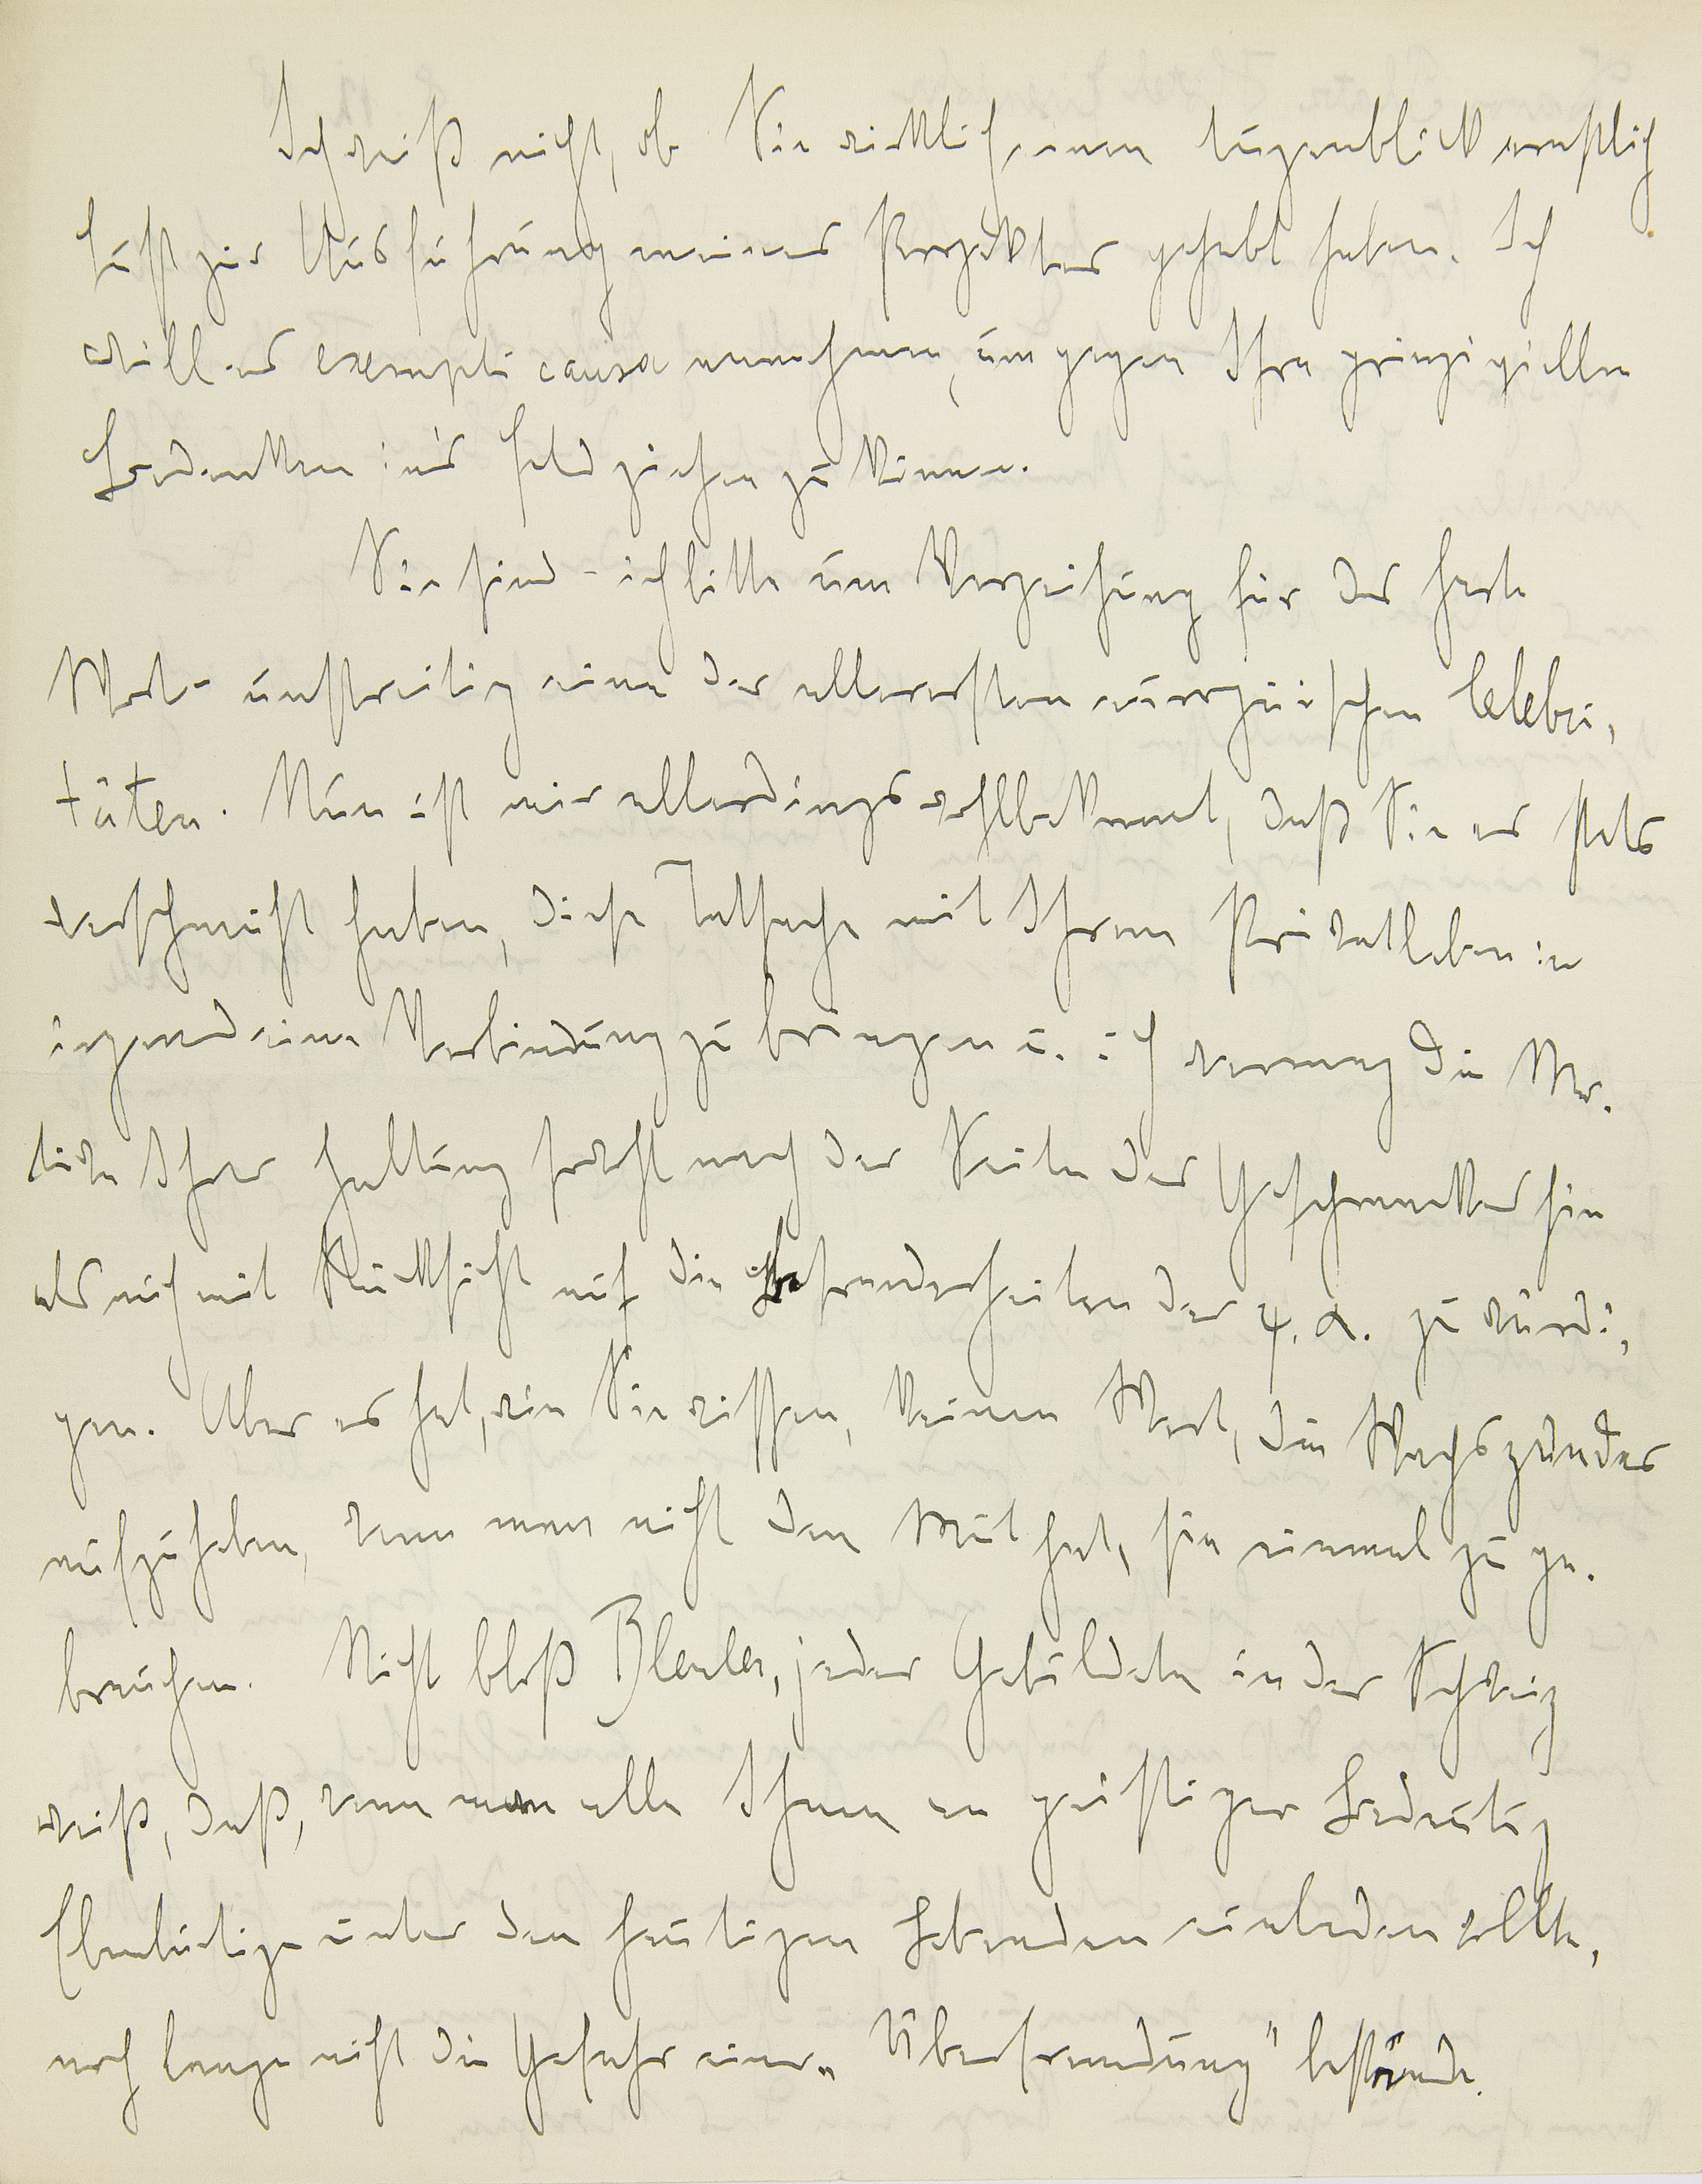 Ich weiß nicht, ob Sie wirklich einen Augenblick ernstlich
Lust zur Ausführung meines Projektes gehabt haben. Ich
will es exempli causa annehmen, um gegen Ihre prinzipiellen
Bedenken ins Feld ziehen zu können.
Sie sind - ich bitte um Verzeihung für das harte
Wort - unstreitig eine der allerersten europäischen Celebri-
täten. Nun ist mir allerdings wohlbekannt, daß Sie es stets
verschmäht haben, diese Tatsache mit Ihrem Privatleben in
irgend eine Verbindung zu bringen u. ich vermag die Mo-
tive Ihrer Haltung sowohl nach der Seite des Geschmackes hin
als auch mit Rücksicht auf die Besonderheiten der ψ. α. zu würdi-
gen. Aber es hat, wie Sie wissen, keinen Wert, die Wachszünder
aufzuheben, wenn man nicht den Mut hat, sie einmal zu ge-
brauchen. Nicht bloß Bleuler, jeder Gebildete in der Schweiz
weiß, daß, wenn man alle Ihnen an geistiger Bedeutung
Ebenbürtige unter den heutigen Lebenden einladen wollte,
noch lange nicht die Gefahr einer „Überfremdung" bestünde.